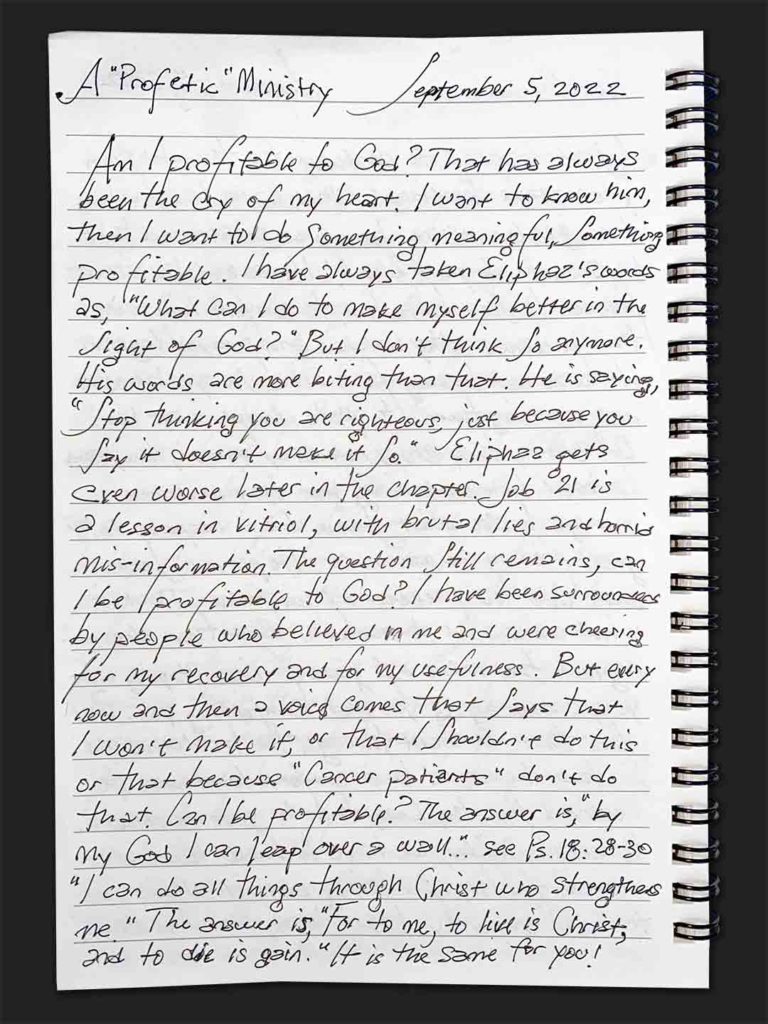 A "Profetic" Ministry September 5, 2022
Am I profitable to God? That has always
been the cry of my heart. I want to know him,
then I want to do something meaningful, something
profitable. I have always taken Eliphaz's words
as, "What can I do to make myself better in the
sight of God?" But I don't think so anymore.
His words are more biting than that. He is saying,
"Stop thinking you are righteous, just because you
say it doesn't make it so." Eliphaz gets
even worse later in the chapter. Job 21 is
a lesson in vitriol, with brutal lies and horrid
mis-information. The question still remains, can
I be profitable to God? I have been surrounded
by people who believed in me and were cheering
for my recovery and for my usefulness. But every
now and then a voice comes that says that
I won't make it, or that I shouldn't do this
or that because "Cancer patients" don't do
that. Can I be profitable? The answer is, "by
my God I can leap over a wall..." see Ps. 18:28-30
"I can do all things through Christ who strengthens
me." The answer is, "For to me, to live is Christ,
and to die is gain." It is the same for you!